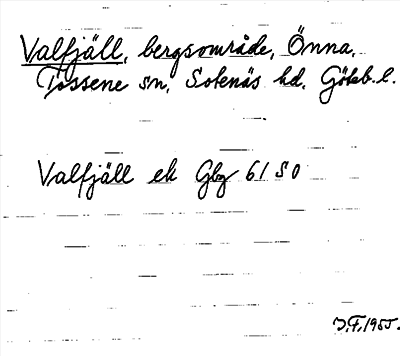 Valfjäll, bergsområde, Önna,
Tossene sn, Sotenäs hd, Göteb. l.
Valfjäll ek Gbg 61 SO
J.F. 1955.